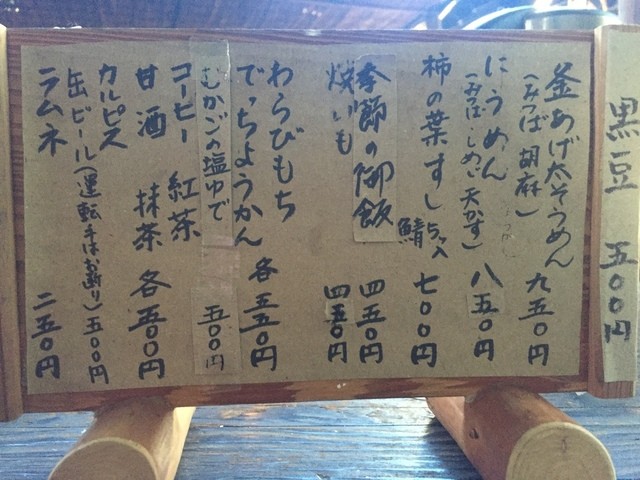 黒豆 五〇〇円
釜あげ太そうめん
(みつば 胡麻) 九五〇円
にうめん
(みつば・しめじ 天かす) 八五〇円
柿の葉すし 鯖 5ヶ入 七〇〇円
季節の御飯 四五〇円
焼いも 四五〇円
わらびもち
でっちようかん 各五五〇円
むかごの塩ゆで 五〇〇円
コーヒー 紅茶
甘酒 抹茶 各五〇〇円
カルピス
缶ビール(運転手はお断り)五〇〇円
ラムネ 二五〇円